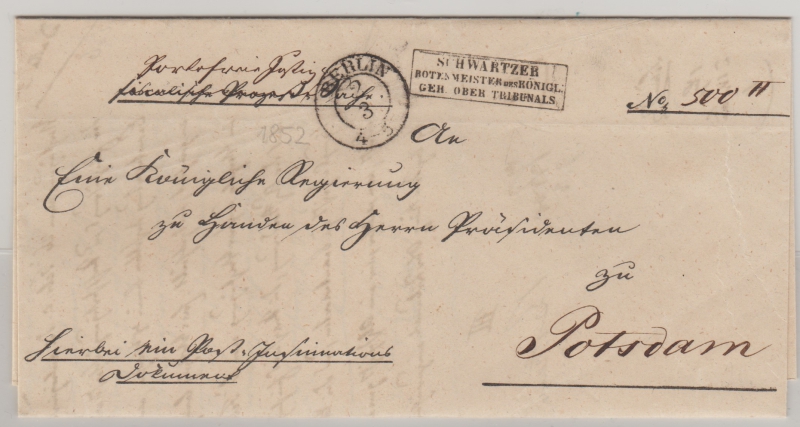 Portofreie Justiz
fiscalische Prozeß Sache.
BERLIN
3
4 - 5
SCHWARTZER
BOTENMEISTER DES KÖNIGL.
GEH. OBER TRIBUNALS.
No. 500 II
1852
An
Eine Königliche Regierung
zu Händen des Herrn Präsidenten
zu
Potsdam
Hierbei ein Post-Insinuations
Dokument